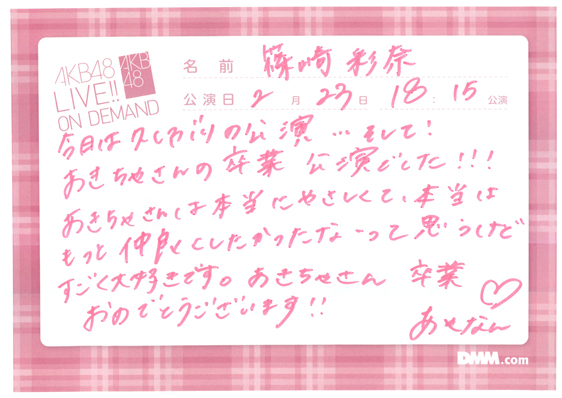 AKB48
LIVE!!
ON DEMAND
AKB
48
名前 篠崎彩奈
公演日 2月23日 18:15公演
今日は久しぶりの公演…そして!
あきちゃさんの卒業公演でした!!!
あきちゃさんは本当にやさしくて、本当は
もっと仲良くしたかったなーって思うけど
すごく大好きです。あきちゃさん 卒業
おめでとうございます!!
あやなん
DMM.com